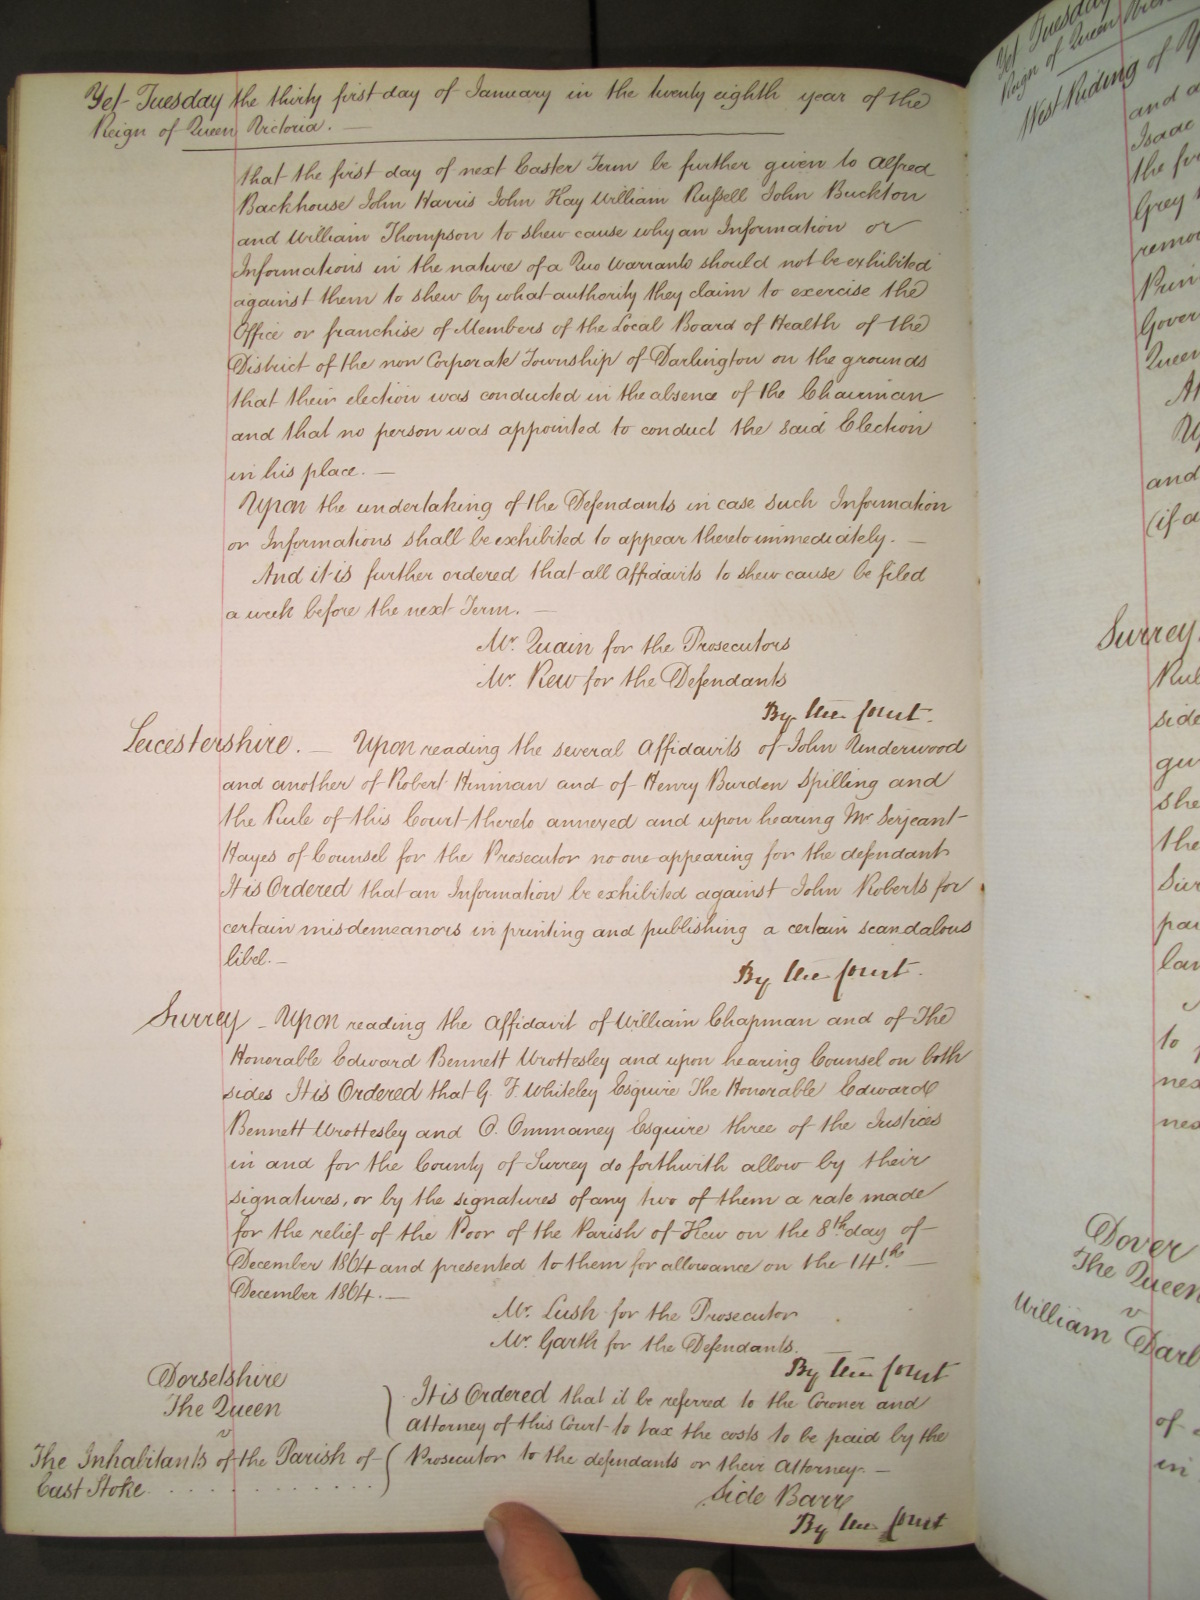 Yet Tuesday the thirty first day of January in the twenty eighth year of the
Reign of Queen Victoria. —
that the first day of next Easter Term be further given to Alfred
Backhouse John Harris John Kay William Russell John Buckton
and William Thompson to shew cause why an Information or
Informations in the nature of a Quo Warranto should not be exhibited
against them to shew by what authority they claim to exercise the
Office or franchise of Members of the Local Board of Health of the
District of the non Corporate Township of Darlington on the grounds
that their election was conducted in the absence of the Chairman
and that no person was appointed to conduct the said Election
in his place. —
Upon the undertaking of the Defendants in case such Information
or Informations shall be exhibited to appear thereto immediately. —
And it is further ordered that all Affidavits to shew cause be filed
a week before the next Term. —
Mr. Quain for the Prosecutors
Mr. Kew for the Defendants
By the Court.
Leicestershire. — Upon reading the several Affidavits of John Underwood
and another of Robert Hinman and of Henry Burden Spilling and
the Rule of this Court thereto annexed and upon hearing Mr. Serjeant
Hayes of Counsel for the Prosecutor no one appearing for the defendant
It is Ordered that an Information be exhibited against John Roberts for
certain misdemeanors in printing and publishing a certain scandalous
libel. —
By the Court.
Surrey — Upon reading the Affidavit of William Chapman and of The
Honorable Edward Bennett Wrottesley and upon hearing Counsel on both
sides It is Ordered that G. F. Whiteley Esquire The Honorable Edward
Bennett Wrottesley and O. Ommaney Esquire three of the Justices
in and for the County of Surrey do forthwith allow by their
signatures, or by the signatures of any two of them a rate made
for the relief of the Poor of the Parish of Kew on the 8th day of
December 1864 and presented to them for allowance on the 14th. —
December 1864. —
Mr. Lush for the Prosecutor
Mr. Garth for the Defendants.
By the Court
Dorsetshire
The Queen
v
The Inhabitants of the Parish of
East Stoke
It is Ordered that it be referred to the Coroner and
Attorney of this Court to tax the costs to be paid by the
Prosecutor to the defendants or their Attorney. —
Side Barr
By the Court
Yet Tuesday
Reign of Queen
West Riding of
and a
Isaac
the
Grey
remo
Prin
Gover
Queen
and
(if a
Surrey.
Rul
side
gu
she
the
Sur
pa
lan
to
nex
nex
Dover
The Queen
v
William Darl
of
in